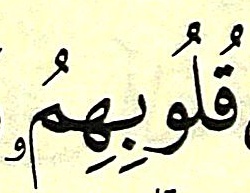 قُلُوبِهِمُۥ